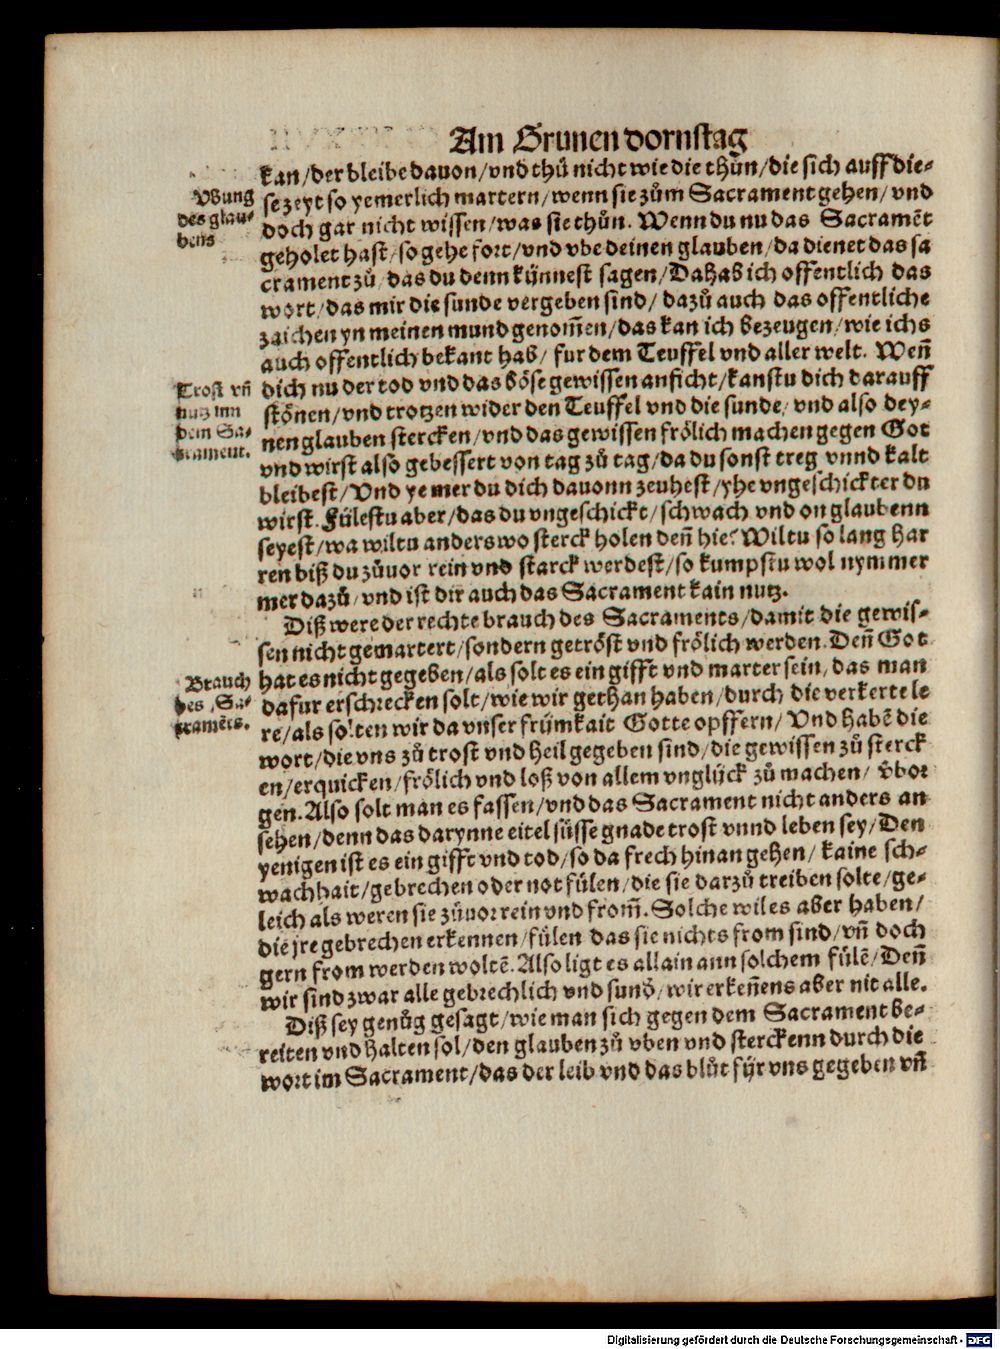 Am Grunen dornstag
kan/der bleibe dauon/vnd thů nicht wie die thůn/die sich auff die-
se zeyt so yemerlich martern/wenn sie zům Sacrament gehen/vnd
Vbung
des glau-
bens
doch gar nicht wissen/was sie thůn. Wenn du nu das Sacramēt
geholet hast/so gehe fort/vnd vbe deinen glauben/da dienet das sa
crament zů/das du denn kÿnnest sagen/Da hab ich offentlich das
wort/das mir die sunde vergeben sind/dazů auch das offentliche
zaichen yn meinen mund genom̄en/das kan ich bezeugen/wie ichs
auch offentlich bekant hab/fur dem Teuffel vnd aller welt. Wen̄
Trost vn̄
nutz inn
dem Sa-
crament.
dich nu der tod vnd das böse gewissen anficht/kanstu dich darauff
stönen/vnd trotzen wider den Teuffel vnd die sunde/vnd also dey-
nen glauben stercken/vnd das gewissen frölich machen gegen Got
vnd wirst also gebessert von tag zů tag/da du sonst treg vnnd kalt
bleibest/Vnd ye mer du dich dauonn zeuhest/yhe vngeschickter du
wirst. Fülestu aber/das du vngeschickt/schwach vnd on glaubenn
seyest/wa wiltu anderswo sterck holen den̄ hie? Wiltu so lang har
ren biß du zůuor rein vnd starck werdest/so kumpstu wol nymmer
mer dazů/vnd ist dir auch das Sacrament kain nutz.
Diß were der rechte brauch des Sacraments/damit die gewis-
sen nicht gemartert/sondern getröst vnd frölich werden. Den̄ Got
Brauch
des Sa-
cramēts.
hat es nicht gegeben/als solt es ein gifft vnd marter sein/das man
dafur erschrecken solt/wie wir gethan haben/durch die verkerte le
re/als solten wir da vnser frümkait Gotte opffern/Vnd habē die
wort/die vns zů trost vnd heil gegeben sind/die gewissen zů sterck
en/erquicken/frölich vnd loß von allem vnglück zů machen/vbor
gen. Also solt man es fassen/vnd das Sacrament nicht anders an
sehen/denn das darynne eitel süsse gnade trost vnnd leben sey/Den
yenigen ist es ein gifft vnd tod/so da frech hinan gehen/kaine sch-
wachhait/gebrechen oder not fülen/die sie darzů treiben solte/ge-
leich als weren sie zůuor rein vnd from̄. Solche wil es aber haben/
die jre gebrechen erkennen/fülen das sie nichts from sind/vn̄ doch
gern from werden woltē. Also ligt es allain ann solchem fülē/Den̄
wir sind zwar alle gebrechlich vnd sund̄/wir erken̄ens aber nit alle.
Diß sey genůg gesagt/wie man sich gegen dem Sacrament be-
reiten vnd halten sol/den glauben zů vben vnd sterckenn durch die
wort im Sacrament/das der leib vnd das blůt für vns gegeben vn̄
Digitalisierung gefördert durch die Deutsche Forschungsgemeinschaft - DFG